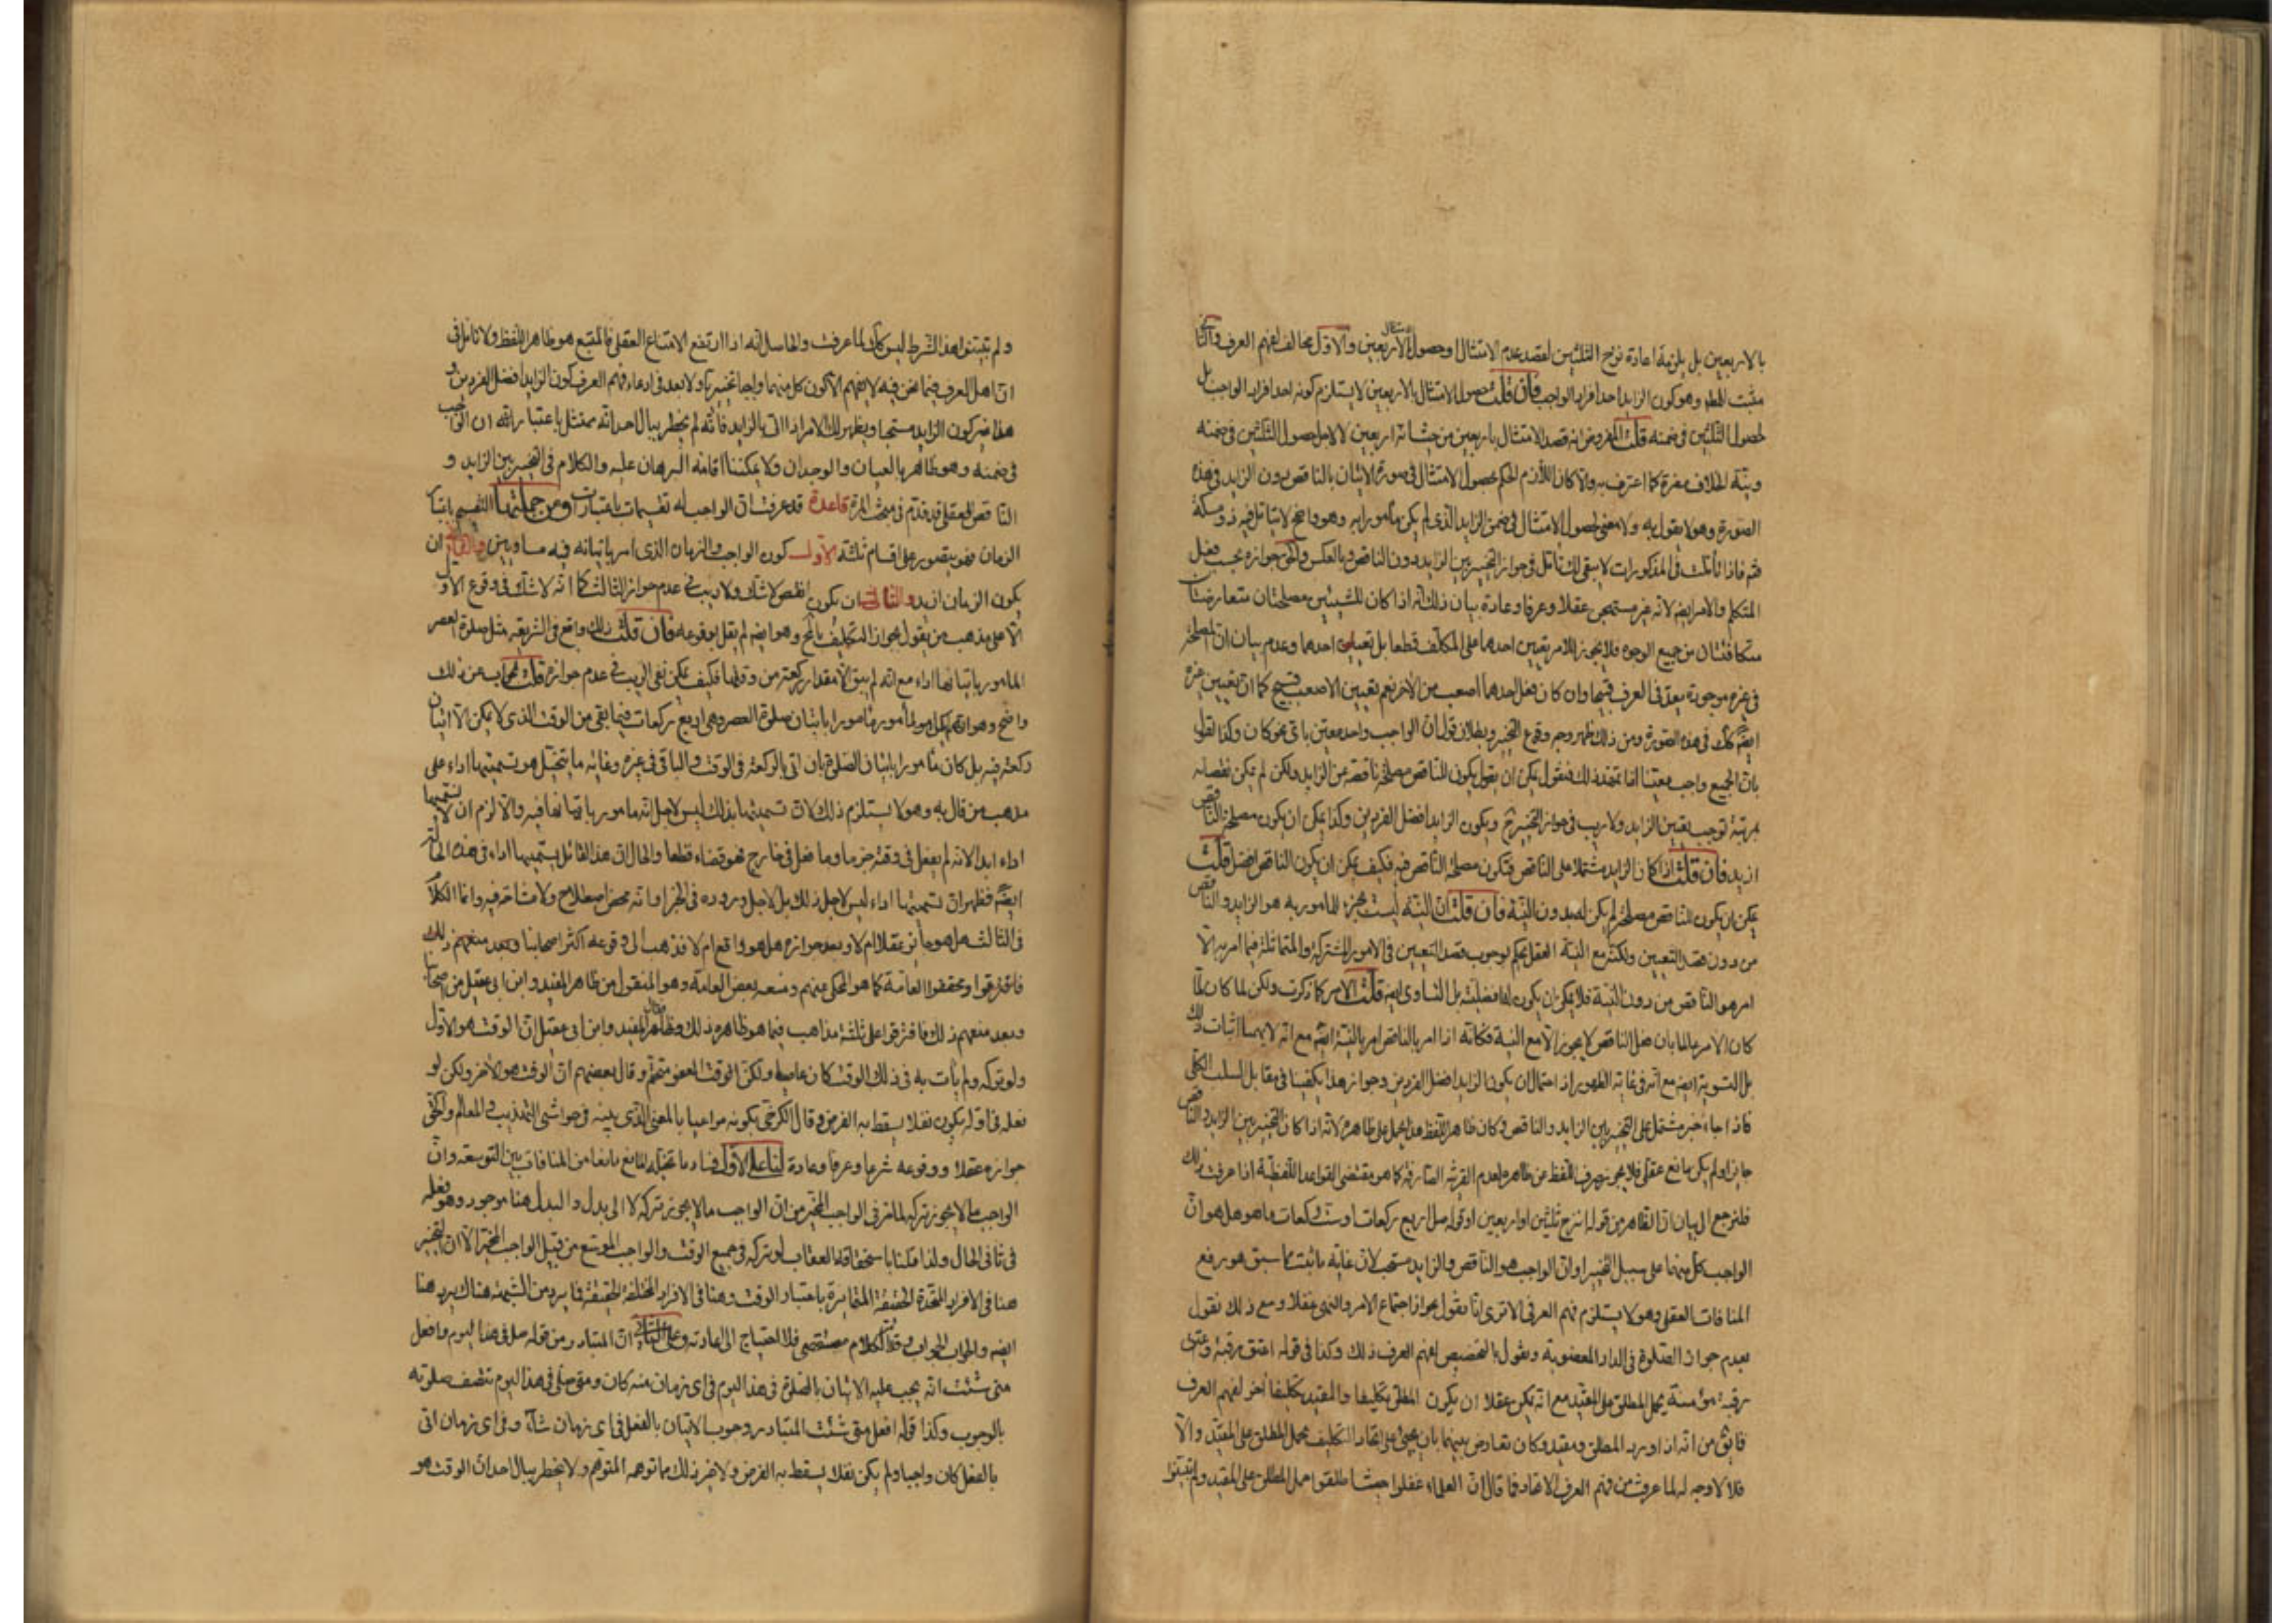 بالاربعين بل يلزمه اعادة نزح الثلثين لقصد عدم الامتثال او حصول الامتثال بالاربعين والاول مخالف لفهم العرف والثانى
مثبت المطلوب وهو كون الزايد احد افراد الواجب فان قلت حصول الامتثال بالاربعين لا يستلزم كونه احد افراد الواجب بل
لحصول الثلثين فى ضمنه قلت المفروض انه قصد الامتثال باربعين من حيث انه اربعين لا لاجل حصول الثلثين فى ضمنه
ونية الخلاف مضرة كما اعترف به والا كان اللازم الحكم بحصول الامتثال فى صورة الاتيان بالناقص دون الزايد فى هذه
الصورة وهو لا يقول به ولا معنى لحصول الامتثال فى ضمن الزايد الذى لم يكن مأمورا به وهو واضح لا يتأمل فيه ذو مسكة
ثم فاذا تأملت فى المذكورات لا يبقى لك تأمل فى جواز التخيير بين الزايد دون الناقص وبالعكس ولكن جوازه بحسب فعل
المتكلم والامر ايضا لانه غير مستهجن عقلا وعرفا وعادة بيان ذلك انه اذا كان للشيئين مصلحتان متعارضتان
متكافئتان من جميع الوجوه فلا يجوز للامر تعيين احدهما على المكلف قطعا بل تعيين احدهما وعدم بيان ان المصلحة
فى غيره موجودة يعد فى العرف قبيحا وان كان فعل احدهما اصعب من الآخر نعم تعيين الاصعب قبيح كما ان تعيين غيره
ايضا كك فى هذه الصورة ومن ذلك ظهر وجه وقوع التخيير وبطلان قول ان الواجب واحد معين باى نحو كان وكذا القول
بان الجميع واجب معينا اذا تمهد ذلك فنقول يمكن ان يقول يكون للناقص مصلحة ناقصة من الزايد ولكن لم يكن نقصانه
بمرتبة توجب تعيين الزايد ولا ريب فى جواز التخيير ح ويكون الزايد افضل الفردين وكذا يمكن ان يكون مصلحة الناقص
ازيد فان قلت اذا كان الزايد مشتملا على الناقص فتكون مصلحة الناقص فيه فكيف يمكن ان يكون الناقص افضل قلت
يمكن ان يكون للناقص مصلحة لم يكن له بدون النية فان قلت ان النية ليست بجزء للمأمور به هو الزايد والناقص
من دون قصد التعيين ولكنه مع النية العقل يحكم بوجوب قصد التعيين فى الامور المشتركة والمتماثلة فيما امر به الا
امر هو الناقص من دون النية فلا يمكن ان يكون له افضلية بل التساوى ايضا قلت الامر كما ذكرت ولكن لما كان لما
كان الامر عالما بان فعل الناقص لا يجوز الا مع النية فكانه اذا امر بالناقص امر بالنية ايضا مع انه لا يهمنا اثبات ذلك
بل التسوية ايضا مع انه فى غاية الظهور اذ احتمال ان يكون الزايد افضل الفردين وجواز هذا يكفينا فى مقابل السلب الكلى
فاذا جاء خبر مشتمل على التخيير بين الزايد والناقص وكان ظاهر اللفظ هذا يحمل على ظاهره لانه اذا كان التخيير بين الزايد والناقص
جايزا ولم يكن مانع عقلى فلا يجوز صرف اللفظ عن ظاهره لعدم القرينة الصارفة كما هو مقتضى القواعد اللفظية اذا عرفت ذلك
فلنرجع الى بيان ان الظاهر من قوله انزح ثلثين او اربعين او قوله صل اربع ركعات او ست ركعات ما هو هل هو ان
الواجب كل منهما على سبيل التخيير او ان الواجب هو الناقص والزايد مستحب لان غاية ما ثبت مما سبق هو رفع
المنافات العقلى وهو لا يستلزم فهم العرفى الا ترى انا نقول بجواز اجتماع الامر والنهى عقلا ومع ذلك نقول
بعدم جواز الصلوة فى الدار المغصوبة ونقول بالتخصيص لفهم العرف ذلك وكذا فى قوله اعتق رقبة وعتق
رقبة مؤمنة يحمل المطلق على المقيد مع انه يمكن عقلا ان يكون المطلق تكليفا والمقيد تكليفا آخر لفهم العرف
فايق من انه اذا ورد المطلق ومقيد وكان تعارض بينهما بان يجئ على اتحاد التكليف يحمل المطلق على المقيد والا
فلا لا وجه له لما عرفت من فهم العرف الاتحاد فما قال ان العلماء غفلوا حيث اطلقوا حمل المطلق على المقيد ولم يثبتوا
ولم يثبتوا هذا الشرط ليس كك لما عرفت والحاصل انه اذا ارتفع الامتناع العقلى فالمتبع هو ظاهر اللفظ ولا تأمل فى
ان اهل العرف فيما نحن فيه لا يفهم الا كون كل منهما واجبا تخييريا ولا بعد فى ادعاء فهم العرف كون الزايد افضل الفردين و
هذا غير كون الزايد مستحبا ويظهر لك الامر اذا اتى بالزايد فانه لم يخطر ببال احد انه ممتثل باعتبار انه ان الواجب
فى ضمنه وهو ظاهر بالعيان والوجدان ولا يمكننا اقامة البرهان عليه والكلام فى التخيير بين الزايد و
الناقص العقلى قد قدم فى مبحث المرة قاعدة قد عرفت ان الواجب له تقسيمات باعتبارات ومن جملتها التقسيم باعتبار
الزمان فهو يتصور على اقسام ثلثة الاول كون الواجب والزمان الذى امر باتيانه فيه مساويين والثانى ان
يكون الزمان ازيد والثالث ان يكون انقص لا شك ولا ريب فى عدم جواز الثالث كما انه لا شك فى وقوع الاول
الا على مذهب من يقول بجواز التكليف بالمح وهو ايضا لم يقل بوقوعه فان قلت ذلك واقع فى الشريعة مثل صلوة العصر
المأمور باتيانها اداء مع انه لم يبق الا مقدار ركعة من وقتها فكيف يمكن نفى الريب فى عدم جوازه قلت الجواب عن ذلك
واضح وهو ان المكلف لم يكن مأمورا باتيان صلوة العصر وهى اربع ركعات فيما بقى من الوقت الذى لا يمكن الا اتيان
ركعة فيه بل كان مأمورا باتيان الصلوة بان اتى بالركعة فى الوقت والباقى فى غيره وغاية ما يتخيل هو تسميتها اداء على
مذهب من قال به وهو لا يستلزم ذلك لان تسميتها بذلك ليس لاجل انه مامور باتيانها فيه والا لزم ان لا يسميها
اداء ابدا لانه لم يفعل فى وقته جزما وما فعل فى خارج فهو قضاء قطعا والحال ان هذا القائل يسميها اداء فى هذه الحالة
ايضا فظهر ان تسميتها اداء ليس لاجل ذلك بل لاجل وروده فى الخبر او انه محض اصطلاح ولا مشاحة فيه وانما الكلام
فى الثالث هل هو جايز عقلا ام لا وبعد جوازه هل هو واقع ام لا فذهب الى وقوعه اكثر اصحابنا وبعد منعهم ذلك
فافترقوا ومحققوا العامة كما هو المحكى عنهم ومنعه بعض العامة وهو المنقول من ظاهر المفيد وابن ابى عقيل من اصحابنا
وبعد منعهم ذلك فافترقوا على ثلثة مذاهب فيما هو ظاهره ذلك فظاهر المفيد وابن ابى عقيل ان الوقت هو الاول
ولو تركه ولم يأت به فى ذلك الوقت كان عاصيا ولكن الوقت العفو متحتم وقال بعضهم ان الوقت هو الآخر ولكن لو
فعله فى اوله يكون نفلا يسقط به الفرض وقال الكرخى بكونه مراعيا بالمعنى الذى بينه فى حواشى التهذيب والمعالم والحق
جوازه عقلا ووقوعه شرعا وعرفا وعادة لنا على الاول فساد ما تخيله المانع مانعا من المنافات بين التوسعة وان
الواجب ما لا يجوز تركه لما مر فى الواجب المخير من ان الواجب ما لا يجوز تركه لا الى بدل والبدل هنا موجود وهو فعله
فى ثانى الحال ولذا حكمنا باستحقاق العقاب لو تركه فى جميع الوقت والواجب الموسع من قبيل الواجب المخير الا ان التخيير
هنا فى الافراد المتحدة الحقيقة المتمايزة باعتبار الوقت وهنا فى الافراد المختلفة الحقيقة فما يرد من الشبهة هناك يرد هنا
ايضا والجواب الجواب وقد مر الكلام مستقصى فلا احتياج الى اعادته وعلى الثانى ان المتبادر من قوله صل فى هذا اليوم وافعل
متى شئت انه يجب عليه الاتيان بالصلوة فى هذا اليوم فى اى زمان منه كان ومتى صلى فى هذا اليوم تتصف صلوته
بالوجوب وكذا قوله افعل متى شئت المتبادر وجوب الاتيان بالفعل فى اى زمان شاء وفى اى زمان اتى
بالفعل كان واجبا ولم يكن نفلا يسقط به الفرض ولا غير ذلك مما توهمه المتوهم ولا يخطر ببال احد ان الوقت هو